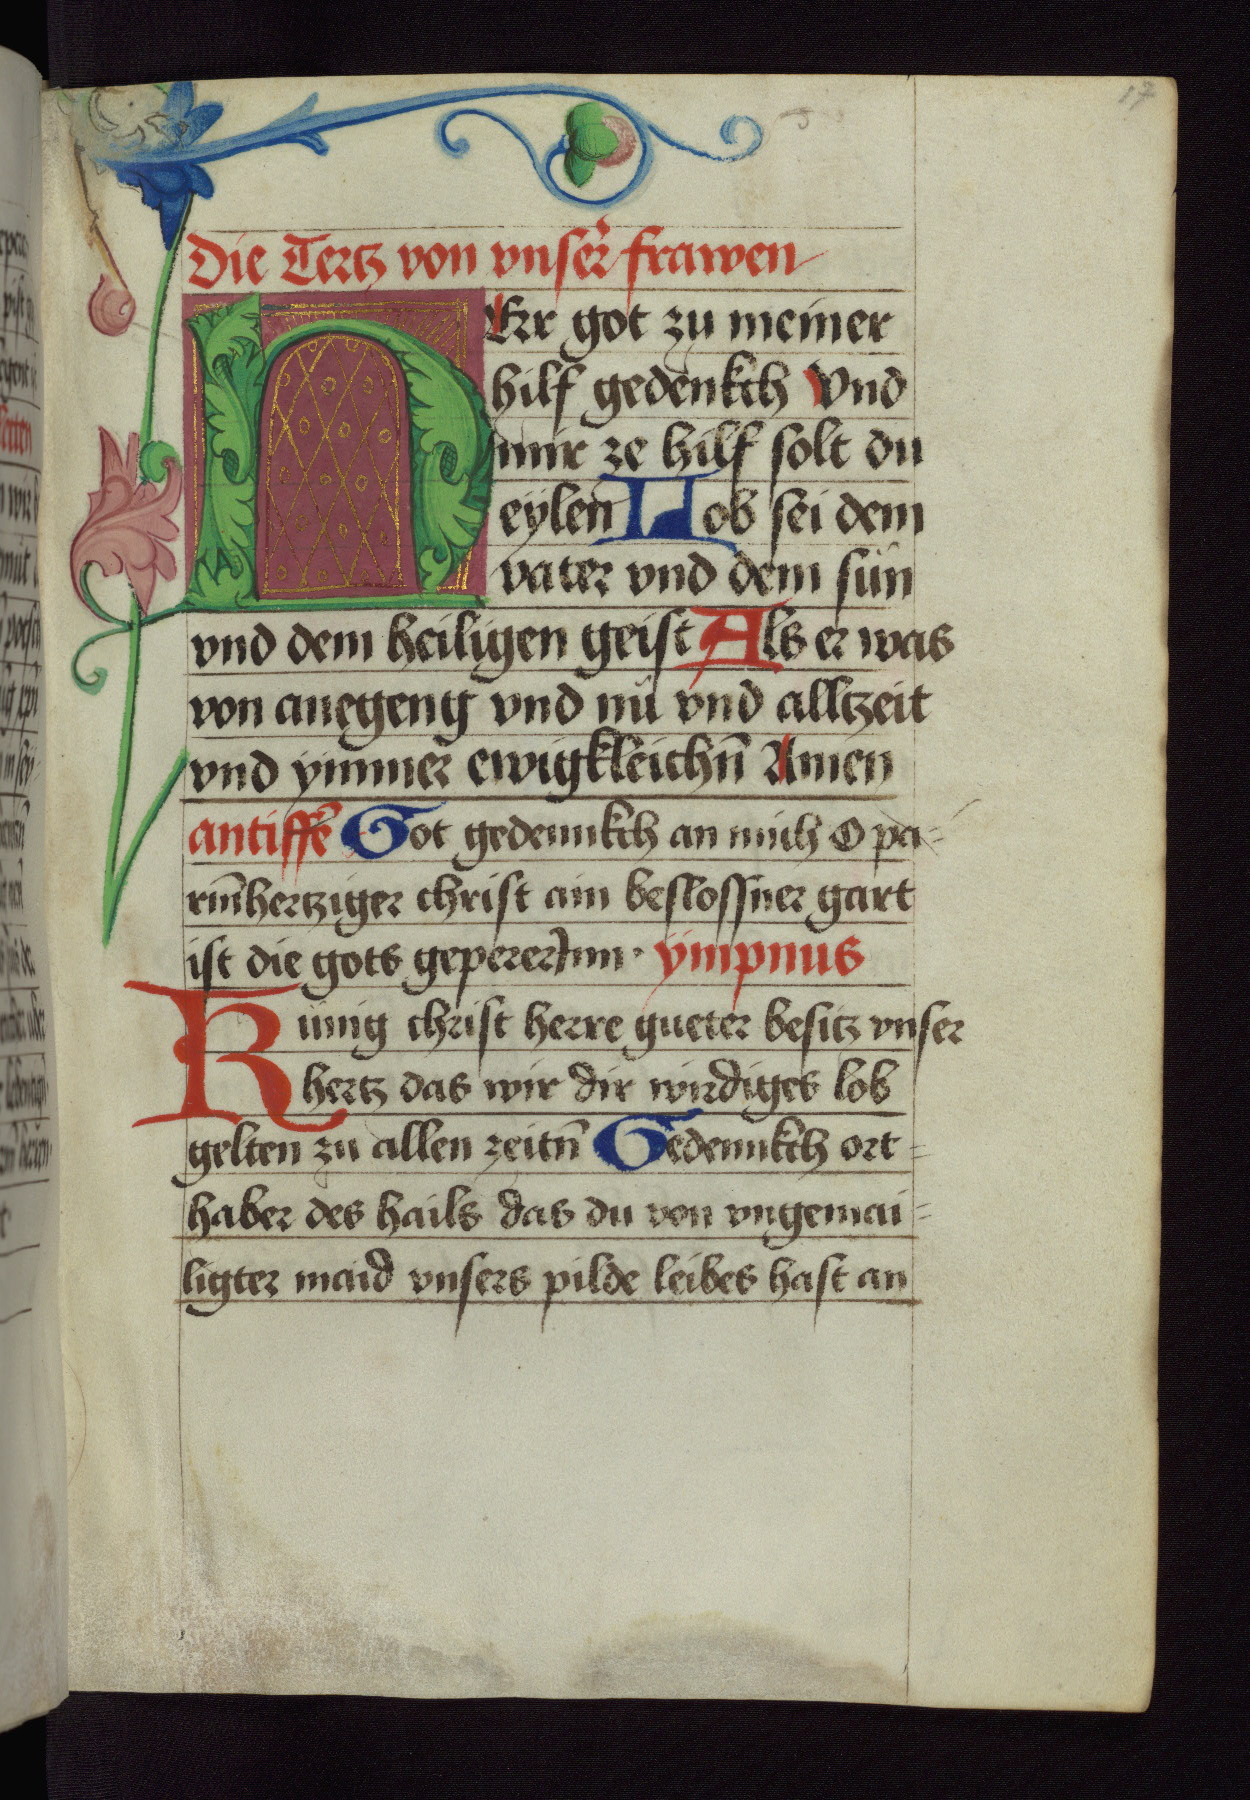 17
Die Tertz von vnser frawen
HErr got zu meiner
hilf gedenkch Vnd
mir ze hilf solt du
eylen Lob sei dem
vater vnd dem sün
vnd dem heiligen geist Als er was
von anegeng vnd nü vnd alltzeit
vnd ymmer ewigkleichñ Amen
antiffẽ Got gedennkch an mich O pa-
rm̃hertziger christ ain beslossner gart
ist die gots gepererinn · ympnus
Künig christ herre gueter besitz vnser
hertz das wir dir wirdiges lob
gelten zu allen zeitñ Gedennkch ort-
haber des hails das du von vngemai-
ligter maid vnsers pilde leibes hast an